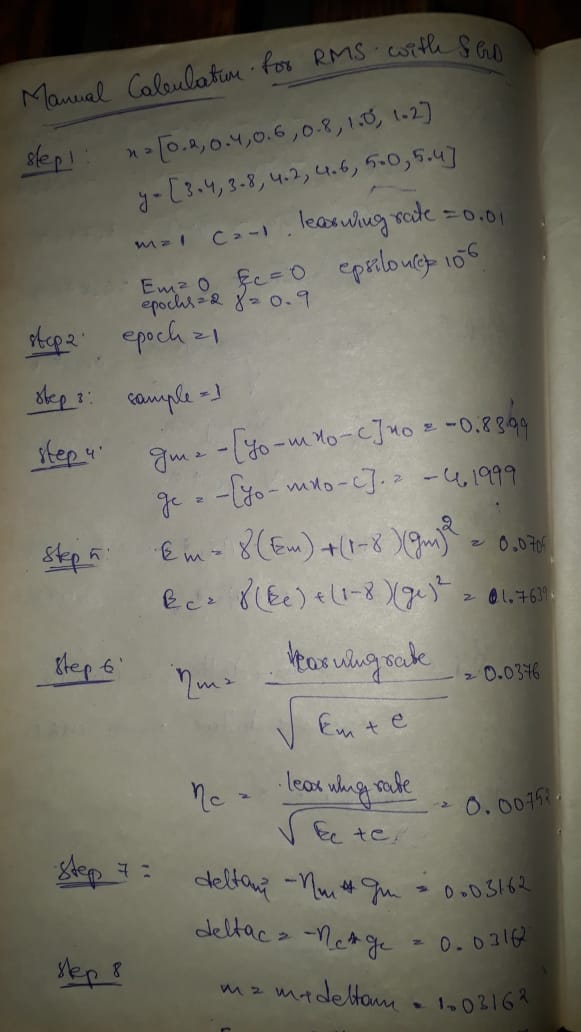 Manual Calculation for RMS with SGD
step 1: x=[0.2,0.4,0.6,0.8,1.0,1.2]
y=[3.4,3.8,4.2,4.6,5.0,5.4]
m=1 c=-1. learning rate=0.01
Em=0 Ec=0 epsilon(e)=10^-6
epochs=2 γ=0.9
step 2: epoch=1
step 3: sample=1
step 4: gm=-[y0-mx0-c]x0=-0.8399
gc=-[y0-mx0-c].=-4.1999
step 5: Em=γ(Em)+(1-γ)(gm)^2=0.0705
Ec=γ(Ec)+(1-γ)(gc)^2=1.7639
step 6: ηm= learning rate / √Em+e =0.0376
ηc= learning rate / √Ec+e =0.00752
step 7: deltam=-ηm*gm=0.03162
deltac=-ηc*gc=0.03162
step 8
m=m+deltam=1.03162